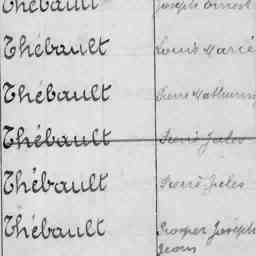 Thébault Joseph Ernest
Thébault Louis Marie
Thébault Pierre Mathurin
Thébault Pierre Jules
Thébault Pierre Jules
Thébault Prosper Joseph
Jean